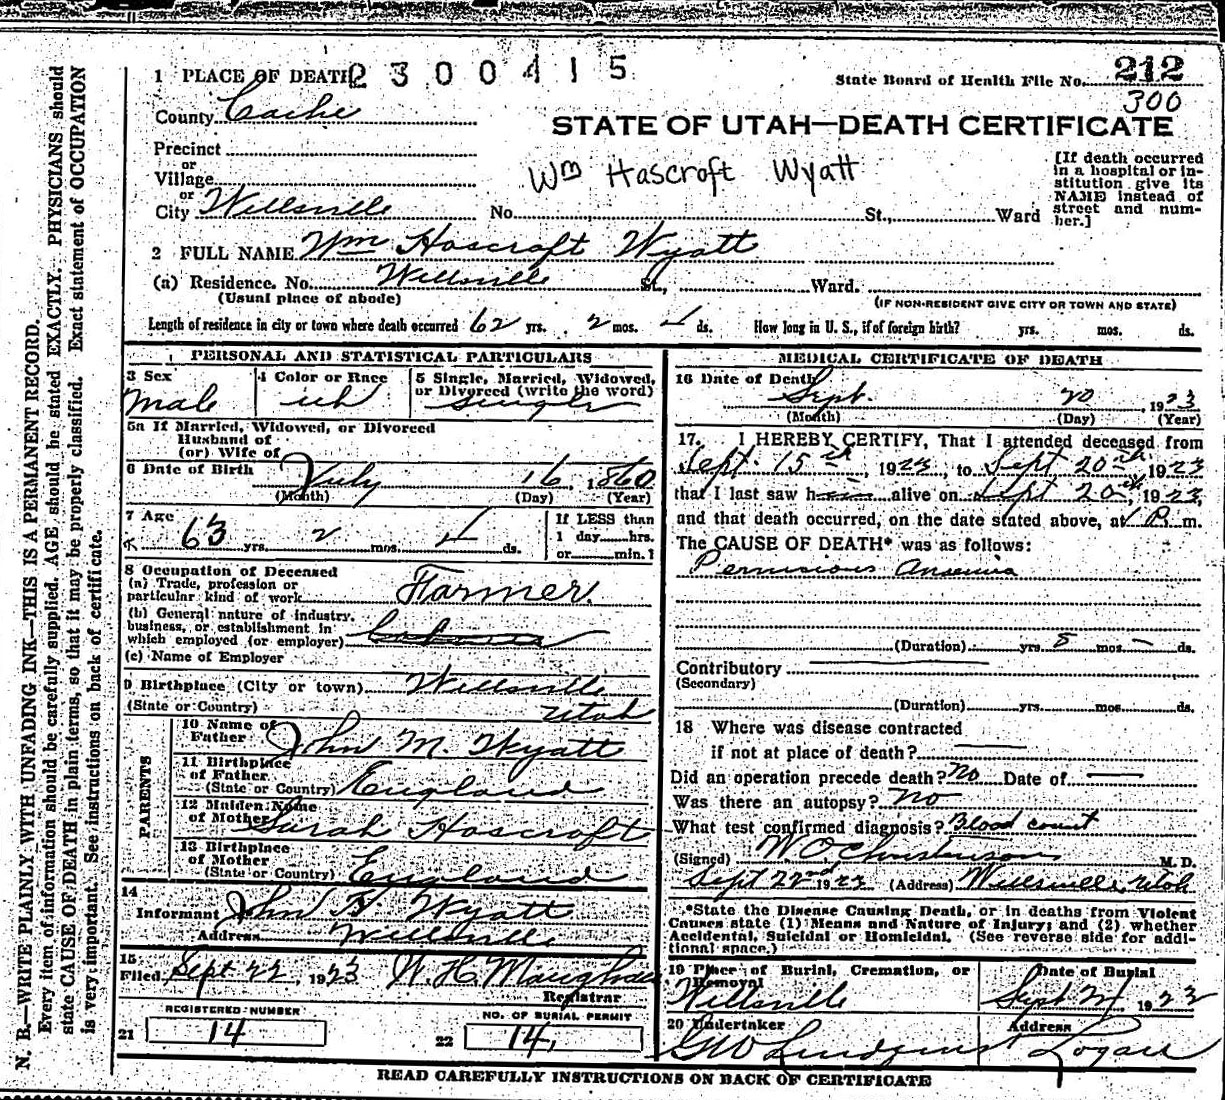 N. B.—WRITE PLAINLY WITH UNFADING INK—THIS IS A PERMANENT RECORD.
Every item of information should be carefully supplied. AGE should be stated EXACTLY. PHYSICIANS should
state CAUSE OF DEATH in plain terms, so that it may be properly classified. Exact statement of OCCUPATION
is very important. See instructions on back of certificate.
1 PLACE OF DEATH 2300415
State Board of Health File No. 212
300
County Cache
STATE OF UTAH—DEATH CERTIFICATE
Precinct
or
Village
or
Wm Hascroft Wyatt
[If death occurred
in a hospital or in-
stitution give its
NAME instead of
street and num-
ber.]
City Wellsville No. St., Ward
2 FULL NAME Wm Hascroft Wyatt
(a) Residence. No. Wellsville St., Ward.
(Usual place of abode) (IF NON-RESIDENT GIVE CITY OR TOWN AND STATE)
Length of residence in city or town where death occurred 62 yrs. 2 mos. 4 ds. How long in U. S., if of foreign birth? yrs. mos. ds.
PERSONAL AND STATISTICAL PARTICULARS
3 Sex
Male
4 Color or Race
wh
5 Single, Married, Widowed,
or Divorced (write the word)
single
5a If Married, Widowed, or Divorced
Husband of
(or) Wife of
6 Date of Birth July 16, 1860
(Month) (Day) (Year)
7 Age
63 yrs. 2 mos. 4 ds.
If LESS than
1 day hrs.
or min.?
8 Occupation of Deceased
(a) Trade, profession or
particular kind of work Farmer.
(b) General nature of industry,
business, or establishment in
which employed (or employer)
(c) Name of Employer
9 Birthplace (City or town) Wellsville
(State or Country) Utah
PARENTS
10 Name of
Father John M. Wyatt
11 Birthplace
of Father
(State or Country) England
12 Maiden Name
of Mother Sarah Hascroft
13 Birthplace
of Mother
(State or Country) England
14
Informant John H. Wyatt
Address Wellsville
15
Filed Sept 22, 1923 W. H. Maughan
Registrar
REGISTERED NUMBER
21 14
NO. OF BURIAL PERMIT
22 14,
MEDICAL CERTIFICATE OF DEATH
16 Date of Death
Sept. 20, 1923
(Month) (Day) (Year)
17. I HEREBY CERTIFY, That I attended deceased from
Sept. 15th, 1923, to Sept 20th, 1923
that I last saw him alive on Sept 20th, 1923,
and that death occurred, on the date stated above, at 1 P. m.
The CAUSE OF DEATH* was as follows:
Pernicious Anaemia
(Duration) yrs. 8 mos. — ds.
Contributory
(Secondary)
(Duration) yrs. mos. ds.
18 Where was disease contracted
if not at place of death?
Did an operation precede death? No Date of —
Was there an autopsy? No
What test confirmed diagnosis? Blood count
(Signed) W O Christenson M. D.
Sept 22nd 1923 (Address) Wellsville Utah
*State the Disease Causing Death, or in deaths from Violent
Causes state (1) Means and Nature of Injury; and (2) whether
Accidental, Suicidal or Homicidal. (See reverse side for addi-
tional space.)
19 Place of Burial, Cremation, or
Removal
Wellsville
Date of Burial
Sept 1923
20 Undertaker
G W Lindquist
Address
Logan
READ CAREFULLY INSTRUCTIONS ON BACK OF CERTIFICATE